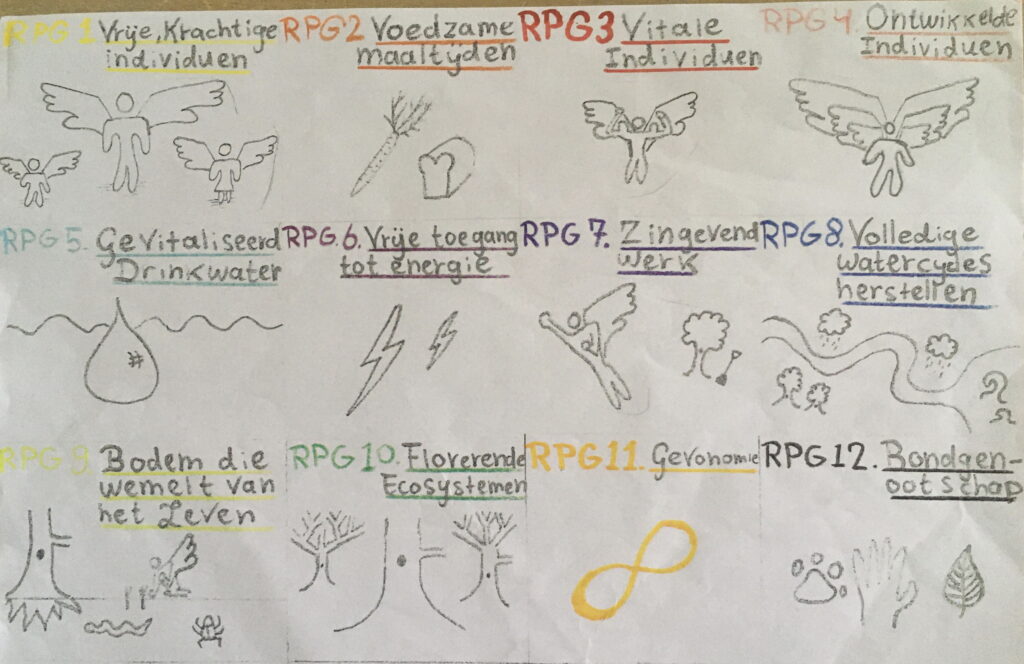 RPG 1 Vrije, Krachtige
individuen
RPG2 Voedzame
maaltijden
RPG3 Vitale
Individuen
RPG 4. Ontwikkelde
Individuen
RPG 5. Gevitaliseerd
Drinkwater
RPG 6. Vrije toegang
tot energie
RPG 7. Zingevend
werk
RPG 8. Volledige
watercycles
herstellen
RPG 9 Bodem die
wemelt van
het Leven
RPG 10. Florerende
Ecosystemen
RPG 11. Gevonomie
RPG 12. Bondgen-
ootschap